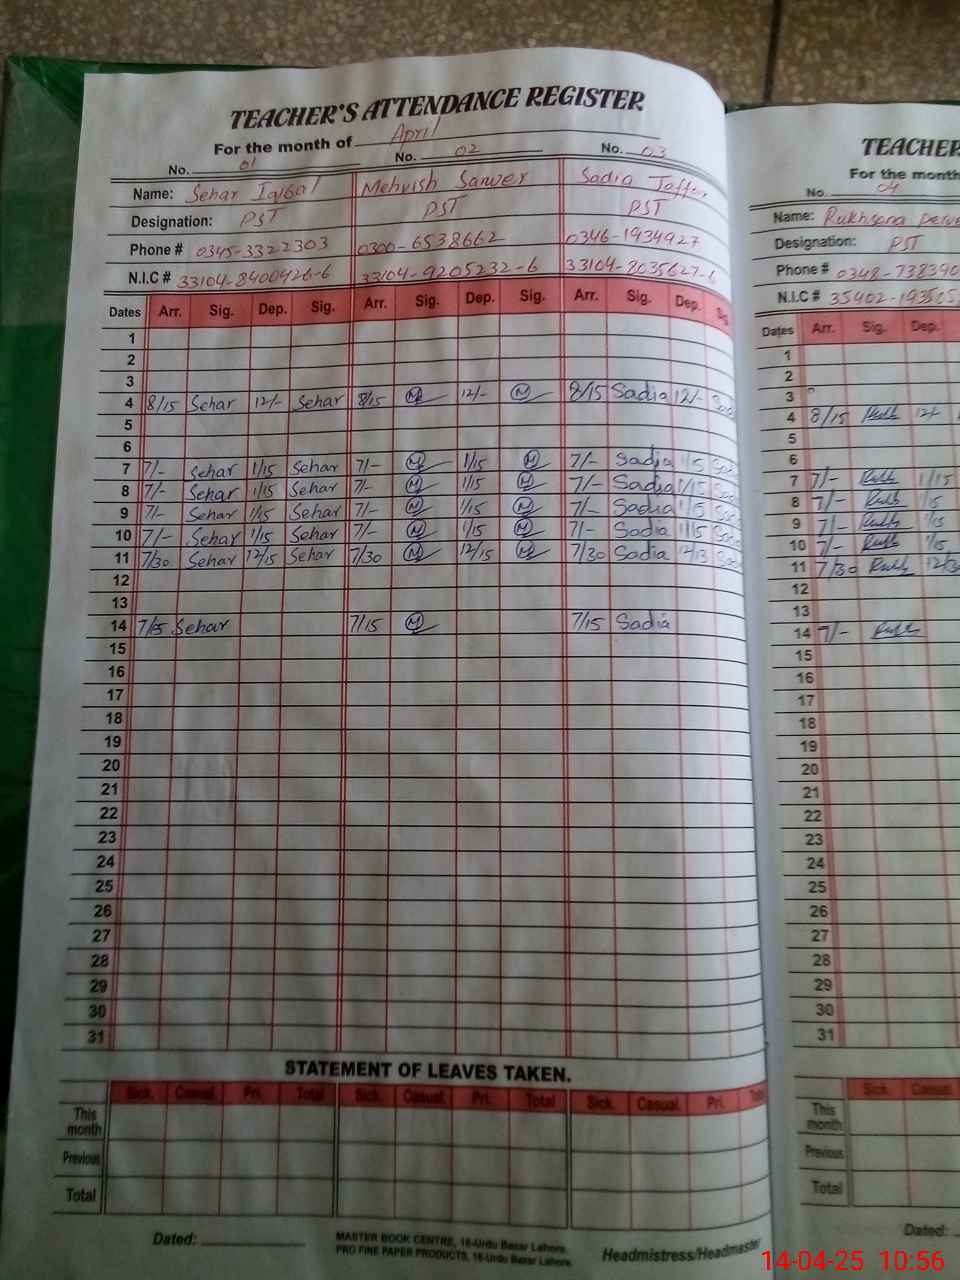 TEACHER'S ATTENDANCE REGISTER
For the month of April
No. 01 No. 02 No. 03
Name: Sehar Iqbal Mehvish Sarwer Sadia Jaffar
Designation: PST PST PST
Phone # 0345-3322303 0300-6538662 0346-1934927
N.I.C # 33104-8400426-6 33104-9205232-6 33104-8035627-6
Dates Arr. Sig. Dep. Sig. Arr. Sig. Dep. Sig. Arr. Sig. Dep. Sig
1
2
3
4 8/15 Sehar 12/- Sehar 8/15 M 12/- M 8/15 Sadia 12/- Sad
5
6
7 7/- Sehar 1/15 Sehar 7/- M 1/15 M 7/- Sadia 1/15 Sad
8 7/- Sehar 1/15 Sehar 7/- M 1/15 M 7/- Sadia 1/15 Sad
9 7/- Sehar 1/15 Sehar 7/- M 1/15 M 7/- Sadia 1/15 Sad
10 7/- Sehar 1/15 Sehar 7/- M 1/15 M 7/- Sadia 1/15 Sad
11 7/30 Sehar 12/15 Sehar 7/30 M 12/15 M 7/30 Sadia 12/15 Sad
12
13
14 7/15 Sehar 7/15 M 7/15 Sadia
15
16
17
18
19
20
21
22
23
24
25
26
27
28
29
30
31
STATEMENT OF LEAVES TAKEN.
Sick. Casual. Pri. Total Sick. Casual. Pri. Total Sick. Casual. Pri. Tot
This month
Previous
Total
Dated:
MASTER BOOK CENTRE, 16-Urdu Bazar Lahore.
PRO FINE PAPER PRODUCTS, 16-Urdu Bazar Lahore.
Headmistress/Headmaster
TEACHER
For the month
No. 04
Name: Rukhsana
Designation: PST
Phone # 0348-738390
N.I.C # 35402-193505
Dates Arr. Sig. Dep.
1
2
3
4 8/15 Rukh 12/-
5
6
7 7/- Rukh 1/15
8 7/- Rukh 1/15
9 7/- Rukh 1/15
10 7/- Rukh 1/15
11 7/30 Rukh 12/3
12
13
14 7/- Rukh
15
16
17
18
19
20
21
22
23
24
25
26
27
28
29
30
31
Sick. Casual
This month
Previous
Total
Dated:
14-04-25 10:56